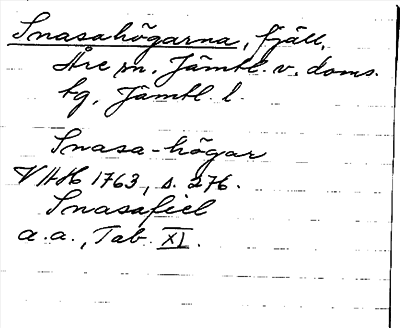 Snasahögarna, fjäll,
Åre sn. Jämtl. v. doms.
tg, Jämtl. l.
Snasa-högar
VAH 1763, s. 276.
Snasafiel
a.a., Tab. XI.